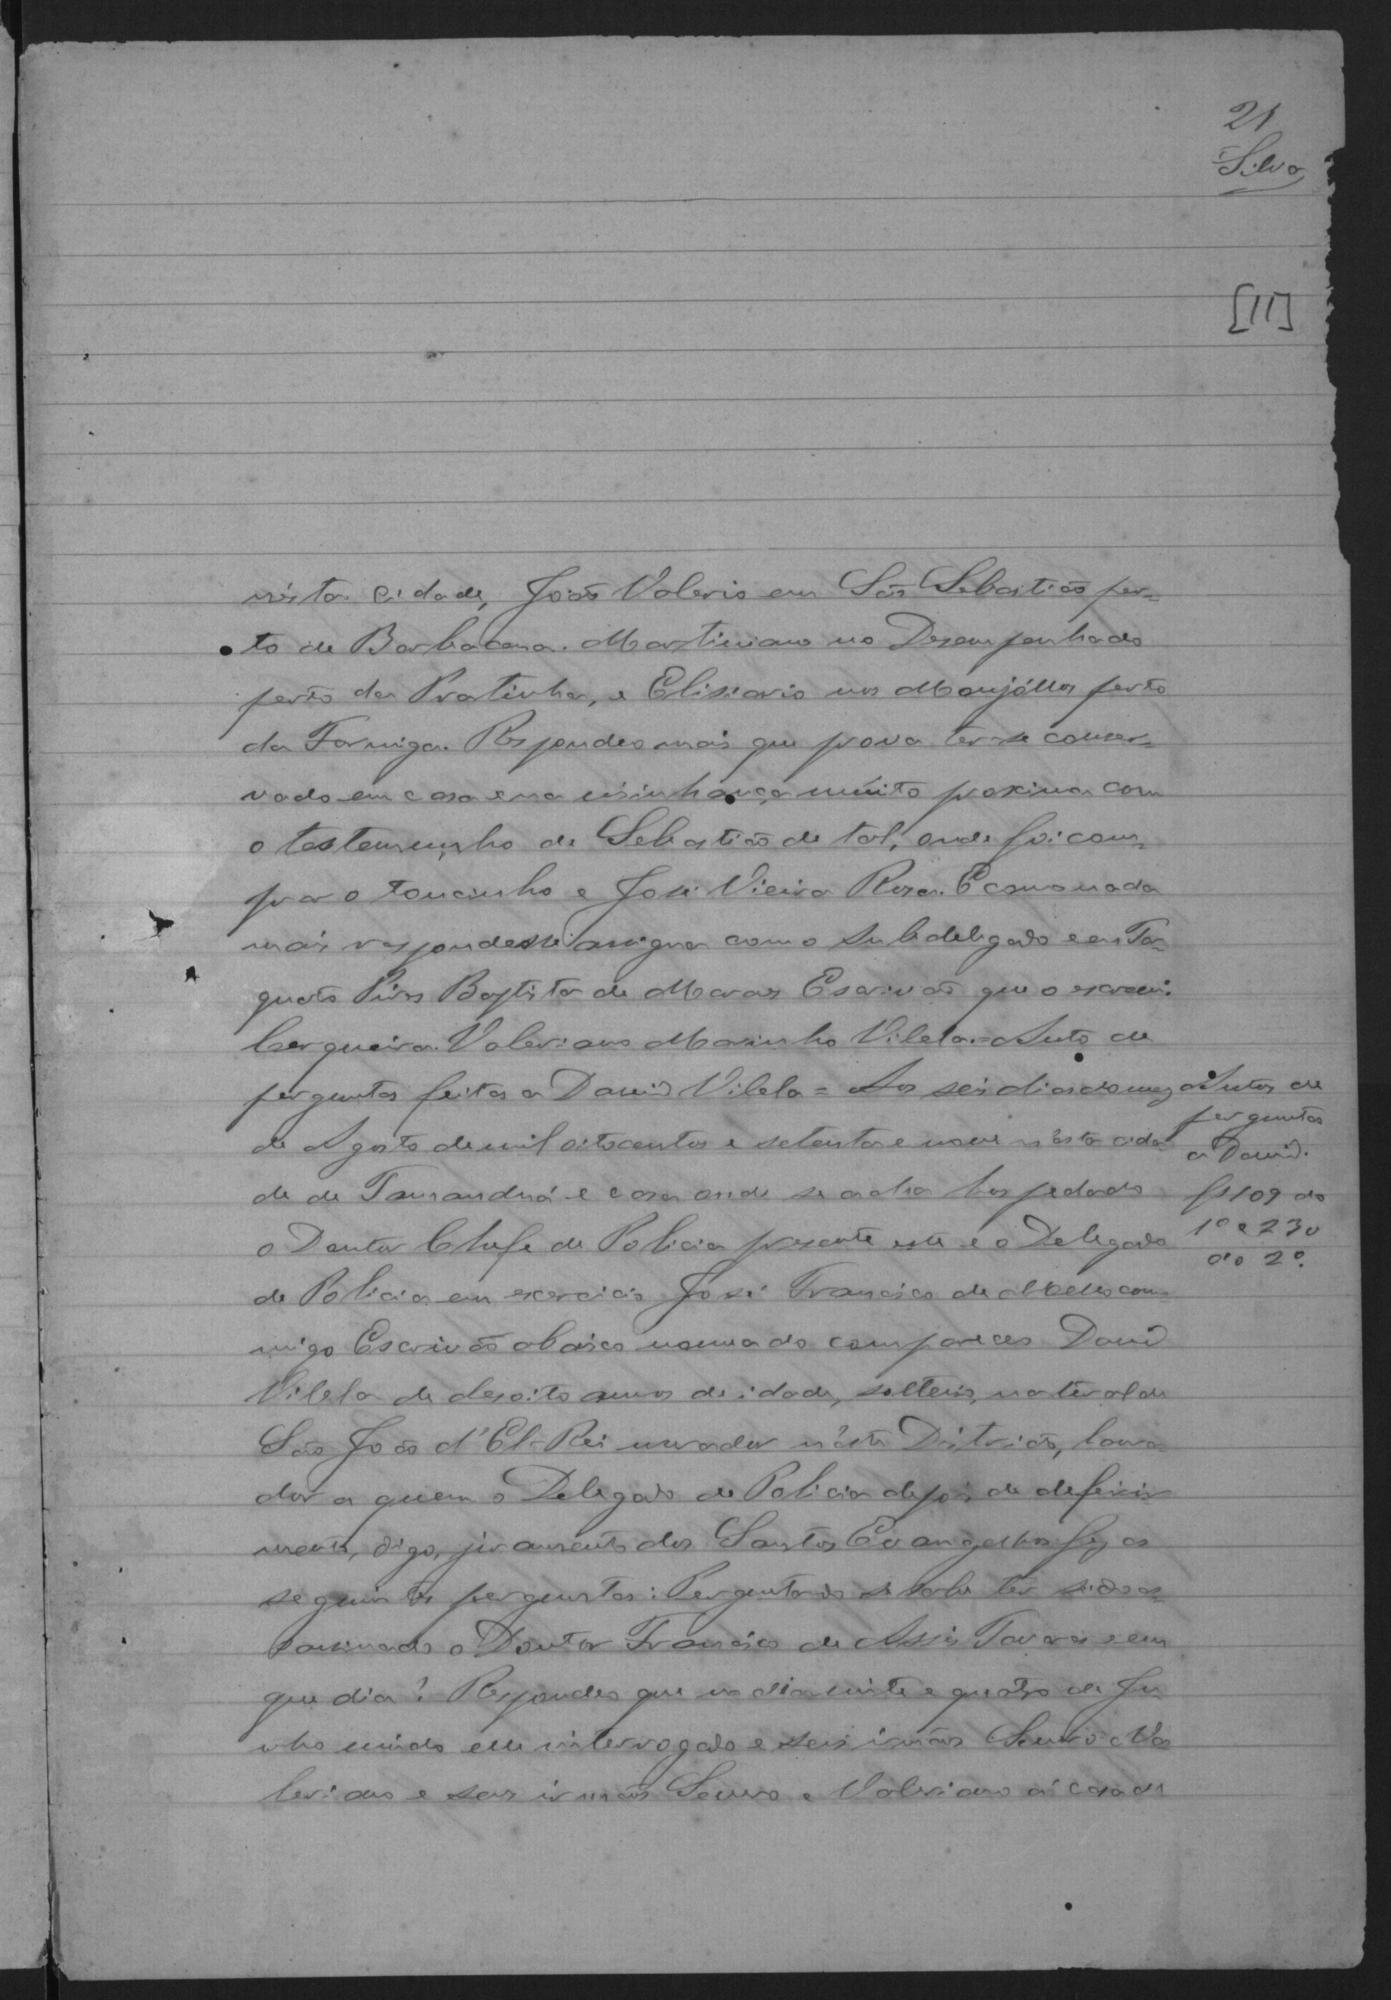 21
Silva
[11]
nésta cidade, João Valerio em São Sebastião per-
to de Barbacena. Martiniano no Desempenhado
perto da Pratinha, e Elisiario nos Monjóllos perto
da Formiga. Respondeo mais que prova ter-se conser-
vado em casa e na visinhança muito proxima com
o testemunho de Sebastião de tal, onde foi com-
prar o toucinho e José Vieira Rosa. E como nada
mais respondesse assigna com o Subdelegado e eu Tor-
quato Pires Baptista de Moraes Escrivão que o escrevi.
Cerqueira. Valeriano Marinho Vilela. = Auto de
perguntas feitas a David Vilela = Aos seis dias do mez
de Agosto de mil oitocentos e setenta e nove n'ésta cida-
de de Tamanduá e casa onde se acha hospedado
o Doutor Chefe de Policia presente este e o Delegado
de Policia em exercicio José Francisco de Mello com-
migo Escrivão abaixo nomeado compareceo David
Vilela de desoito annos de idade, solteiro, natural de
São João d'El-Rei morador n'éste Districto, lavra-
dor a quem o Delegado de Policia depois de deferir
mento, digo, juramento dos Santos Evangelhos fez as
seguintes perguntas: Perguntado se sabe ter sido as-
sassinado o Doutor Francisco de Assis Tavares e em
que dia? Respondeo que no dia vinte e quatro de Ju-
nho vindo elle interrogado e seus irmãos Severo e Va
leriano e seus irmãos Severo e Valeriano á casa de
Autos de
perguntas
a David.
fs 109 do
1º e 230
do 2º.